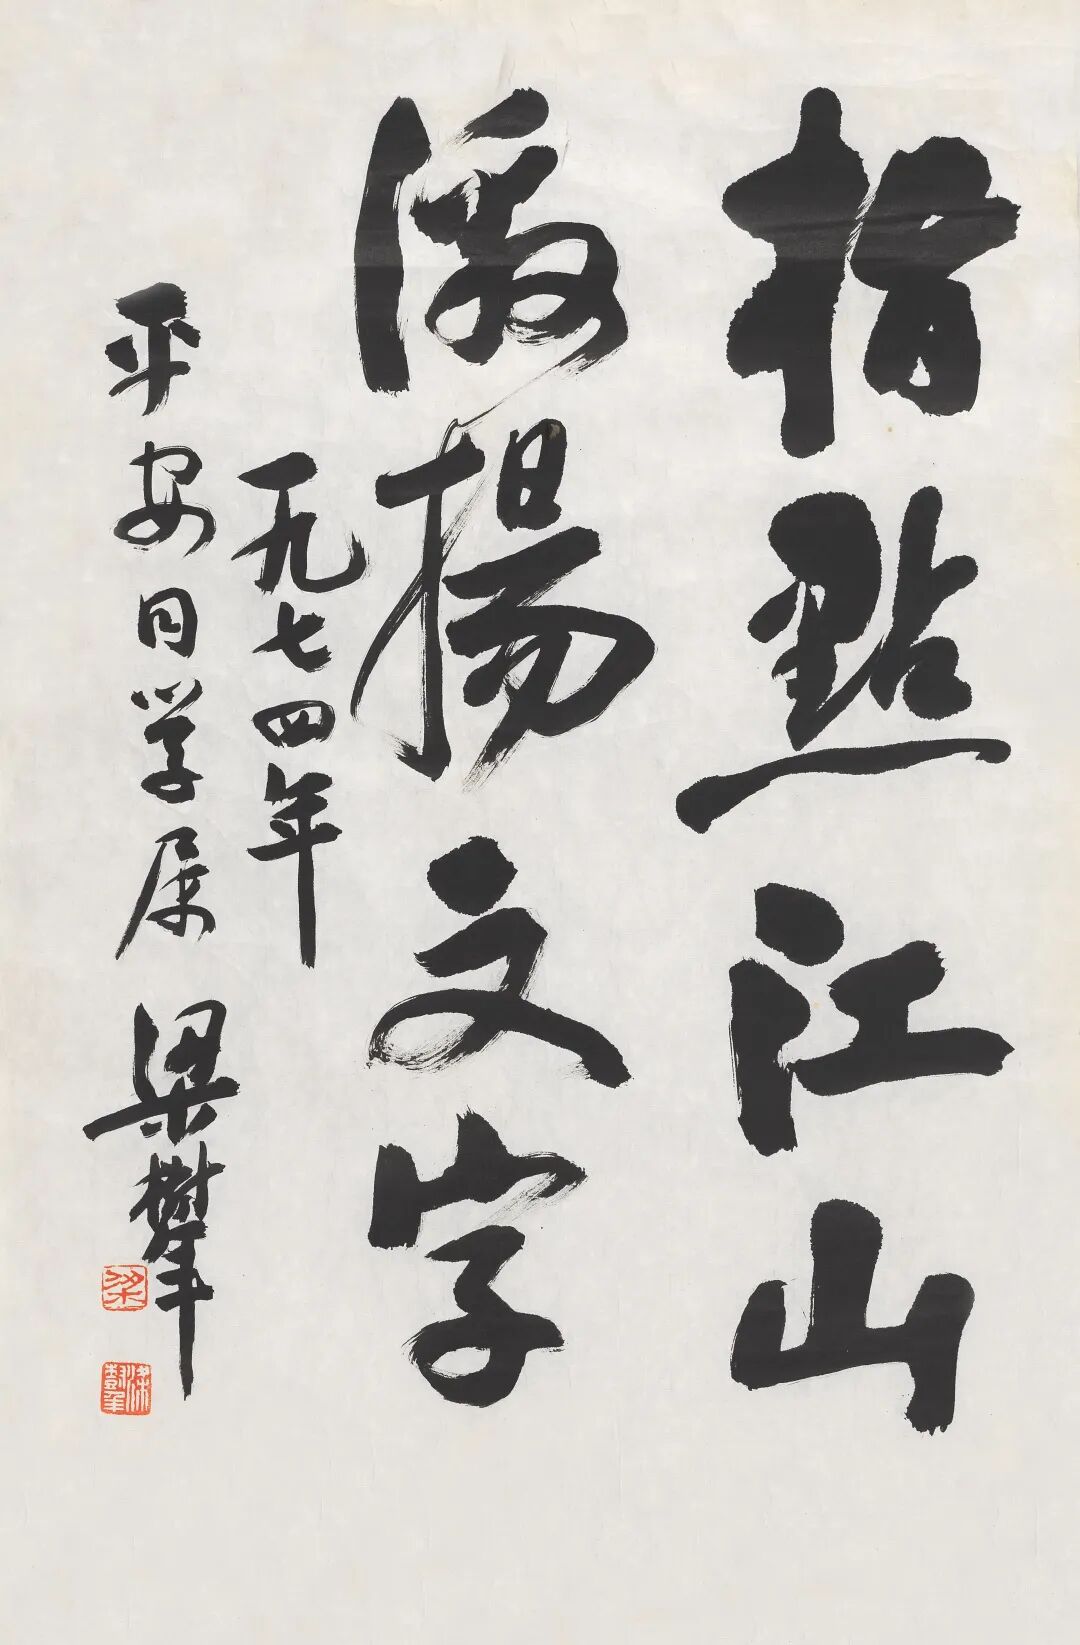 指點江山
激揚文字
一九七四年
平安同学属 梁樹年
梁
梁樹年